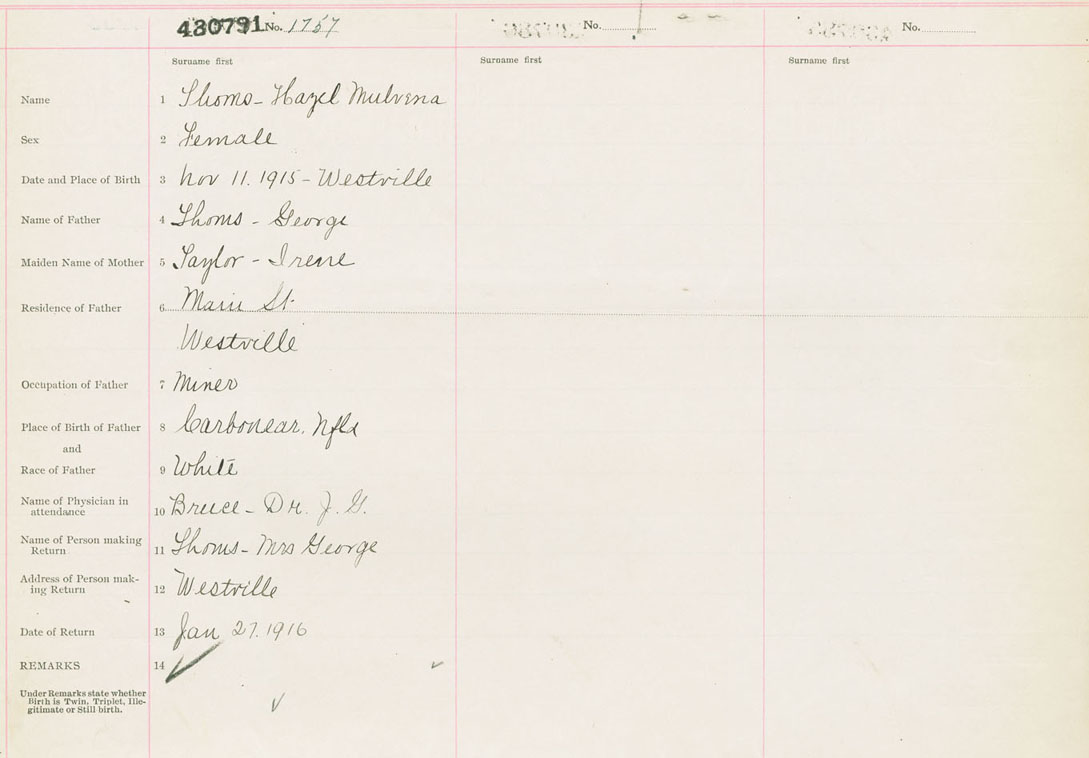 430791 No. 1757 No. No.
Surname first Surname first Surname first
Name 1 Thoms - Hazel Mulvena
Sex 2 Female
Date and Place of Birth 3 Nov 11. 1915 - Westville
Name of Father 4 Thoms - George
Maiden Name of Mother 5 Taylor - Irene
Residence of Father 6 Main St.
Westville
Occupation of Father 7 Miner
Place of Birth of Father 8 Carbonear, Nfld
and
Race of Father 9 White
Name of Physician in
attendance 10 Bruce - Dr. J. G.
Name of Person making
Return 11 Thoms - Mrs George
Address of Person mak-
ing Return 12 Westville
Date of Return 13 Jan 27. 1916
REMARKS 14
Under Remarks state whether
Birth is Twin, Triplet, Ille-
gitimate or Still birth.